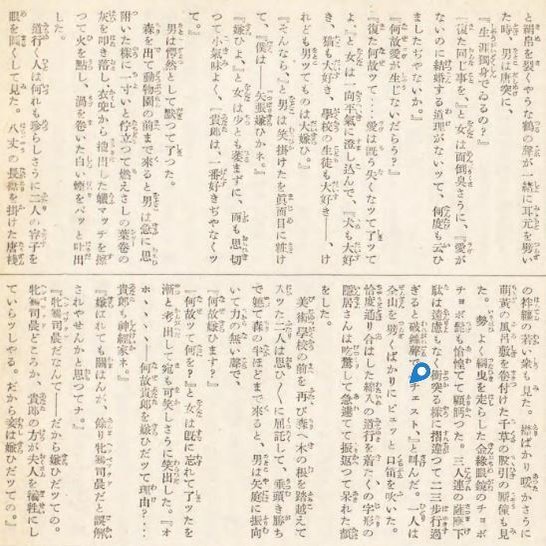 と絹帛を裂くやうな鶴の聲が一緒に耳元を劈い
た時、男は唐突に、
『生涯獨身でゐるの？』
『復た同じ事を、』と女は面倒臭さうに、『愛が
ないのに結婚する道理がないッて、何度も云ひ
ましたぢやないか。』
『何故愛が生じないだらう？』
『復た何故ッて‥‥愛は既う失くなッて了ッて
よ。』と女は一向平氣に澄し込んで、『犬も大好
き、猫も大好き、學校の生徒も大好き――、け
れども男ッてものは大嫌ひ。』
『そんなら、』と男は笑掛けたを眞面目に粧け
て、『僕は――矢張嫌ひかネ。』
『嫌ひよ、』と女は少とも萎まずに、而も思切
つて小氣味よく、『貴郎は、一番好きぢやなくッ
て。』
男は愕然として默つて了つた。
森を出て動物園の前まで來ると男は急に思
附いた樣に一寸いと佇立つて燃えさしの葉卷の
灰を叩き落し、衣兜から攫出した蠟マッチを擦
つて火を點し、渦を卷いた白い烟をパッと吐出
した。
道行く人は何れも珍らしさうに二人の容子を
眼を圓くして見た。八丈の長襦を掛けた唐棧
の袢纏の若い衆も見た。燃ばかり暖かさうに
萌黄の風呂敷を卷付けた千草の股引の爺樣も見
た。勢よく綱曳を走らした金緣眼鏡のチョボ
チョボ髭も恰惶てて顧眄つた。三人連の薩摩下
駄は遠慮もなく衝突る樣に摺違つて二三步行過
ぎると破鐘聲で『チェスト、』と叫んだ。一人は
全山を劈くばかりにピュッと口笛を吹いた。
恰度通り合はした綿入の道行を着たくの字形の
隱居さんは吃驚して急遽てて振返つて呆れた顏
をした。
美術學校の前を再び森へ木の根を踏越えて
入ッた二人は思ひ〱に屈托して、垂頭き勝ち
で軈て森の半ほどまで來ると、男は矢庭に振向
いて力の無い聲で、
『何故嫌ひます？』
『何故ッて何を？』と女は既に忘れて了ッたを
漸と考出して宛も可笑しさうに笑出した。『オ
ホヽヽヽ――何故貴郎を嫌ひだッて理由？‥‥
貴郎も神經家ネ。』
『嫌はれても關はんが、餘り牝鷄司晨だと誤解
されやせんかと思つてナ。』
『牝鷄司晨だなんて――だから嫌ひだッての。
牝鷄司晨どころか、貴郎の方が夫人を犧牲にし
ていらッしやる。だから妾は嫌ひだッての。』